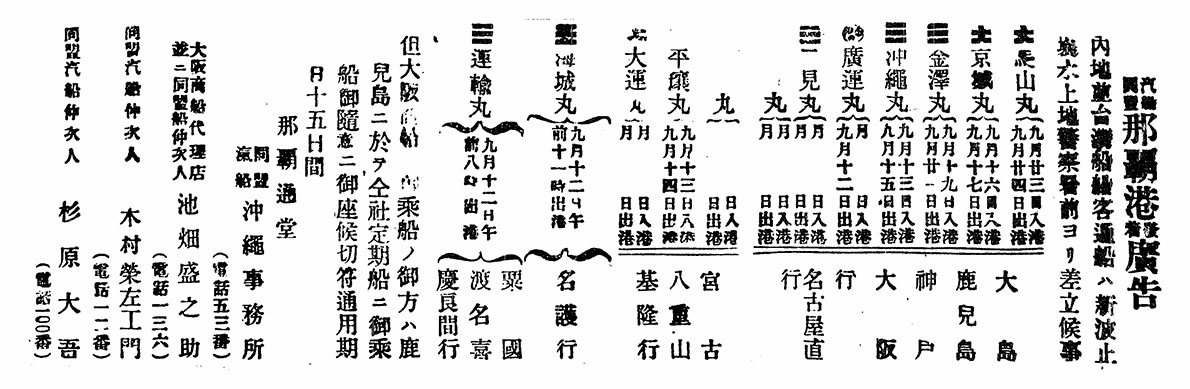 汽船同盟那覇港発着廣告
内地並台湾船艙客通船ハ新波止
塲水上地警察署前ヨリ差立候事
大馬山丸 九月廿三日入港 九月廿四日出港 大島
京城丸 九月十六日入港 九月十七日出港 鹿兒島
金澤丸 九月十九日入港 九月廿一日出港 神戸
沖繩丸 九月十三日入港 九月十五日出港 大阪
廣運丸 九月十二日出港 行
二見丸 月 日入港 月 日出港 名古屋直行
丸 月 日入港 月 日出港
丸 日入港 日出港 宮古
平壤丸 九月十三日入港 九月十四日出港 八重山
大運丸 月 日入港 月 日出港 基隆行
海城丸 九月十二日午前十一時出港 名護行
運輸丸 九月十二日午前八時出港 粟國 渡名喜 慶良間行
但大阪商船 乘船ノ御方ハ鹿
兒島ニ於テ仝社定期船ニ御乘
船御隨意ニ御座候切符通用期
日十五日間
那覇通堂
同盟汽船 沖繩事務所
(電話五三番)
大阪商船代理店並ニ同盟船仲次人 池畑盛之助
(電話一三六)
同盟汽船仲次人 木村榮左工門
(電話一一二番)
同盟汽船仲次人 杉原大吾
(電話一〇〇番)